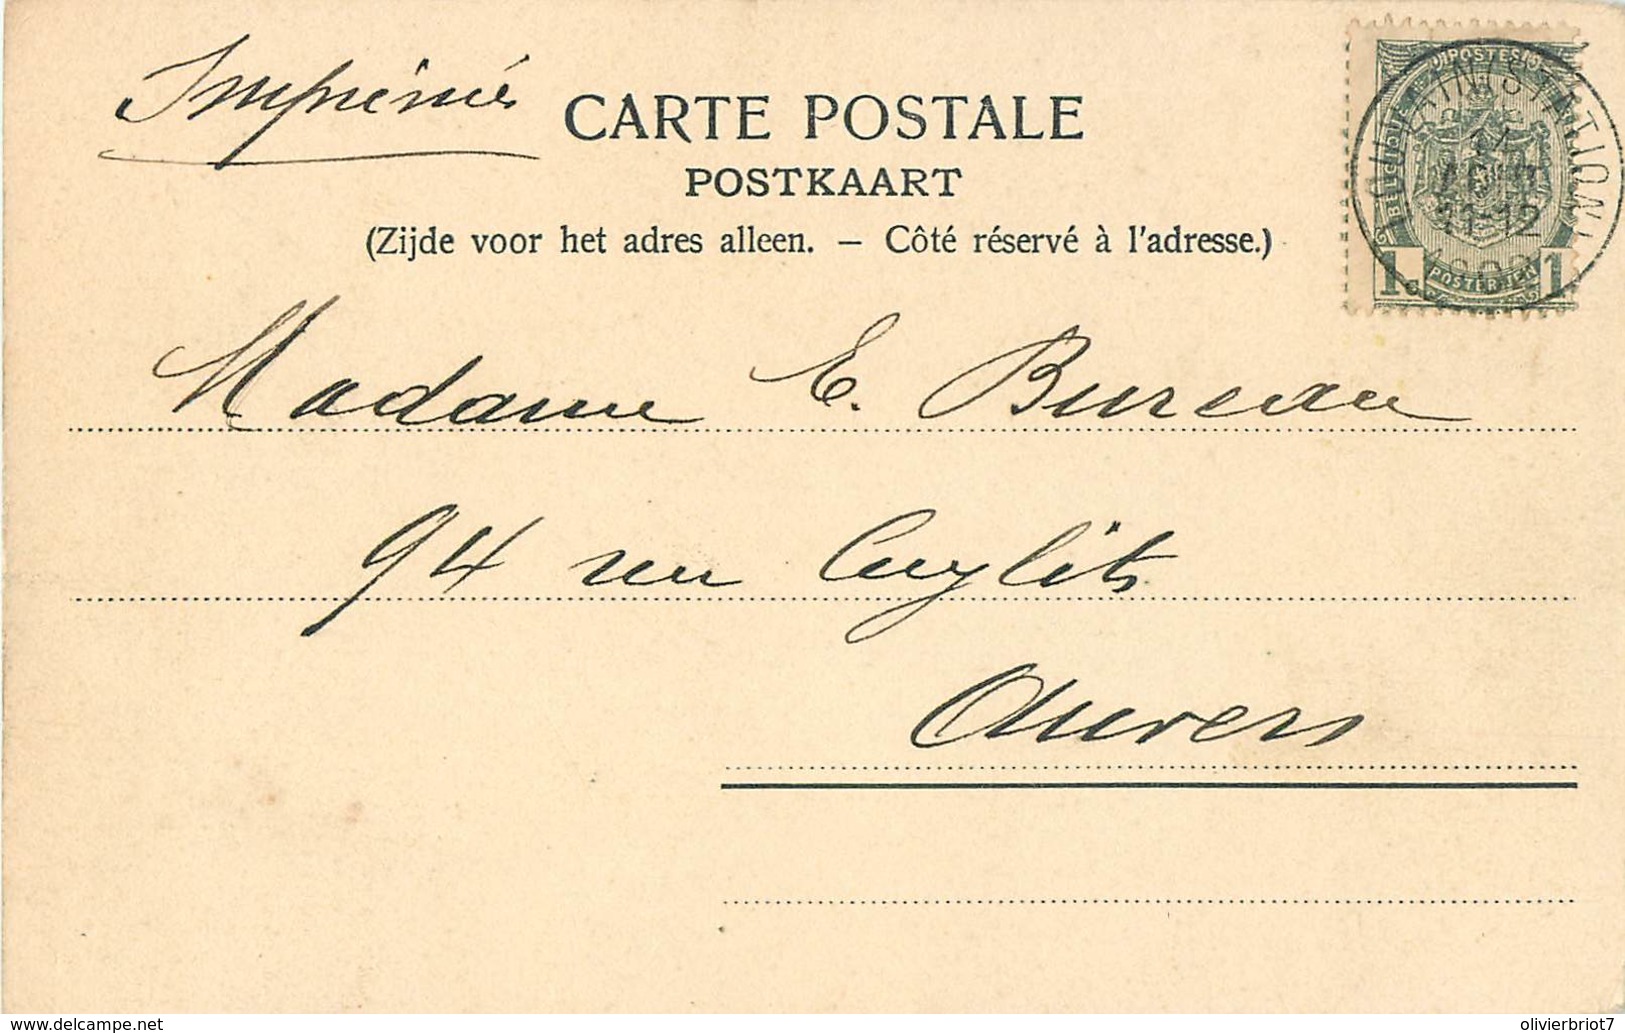 Imprimé
CARTE POSTALE
POSTKAART
(Zijde voor het adres alleen. — Côté réservé à l'adresse.)
POSTES
BELGIQUE
(STATION)
11-12
1c POSTERIJEN 1
Madame E. Bureau
94 rue Cuylits
Anvers
delcampe.net
olivierbriot7